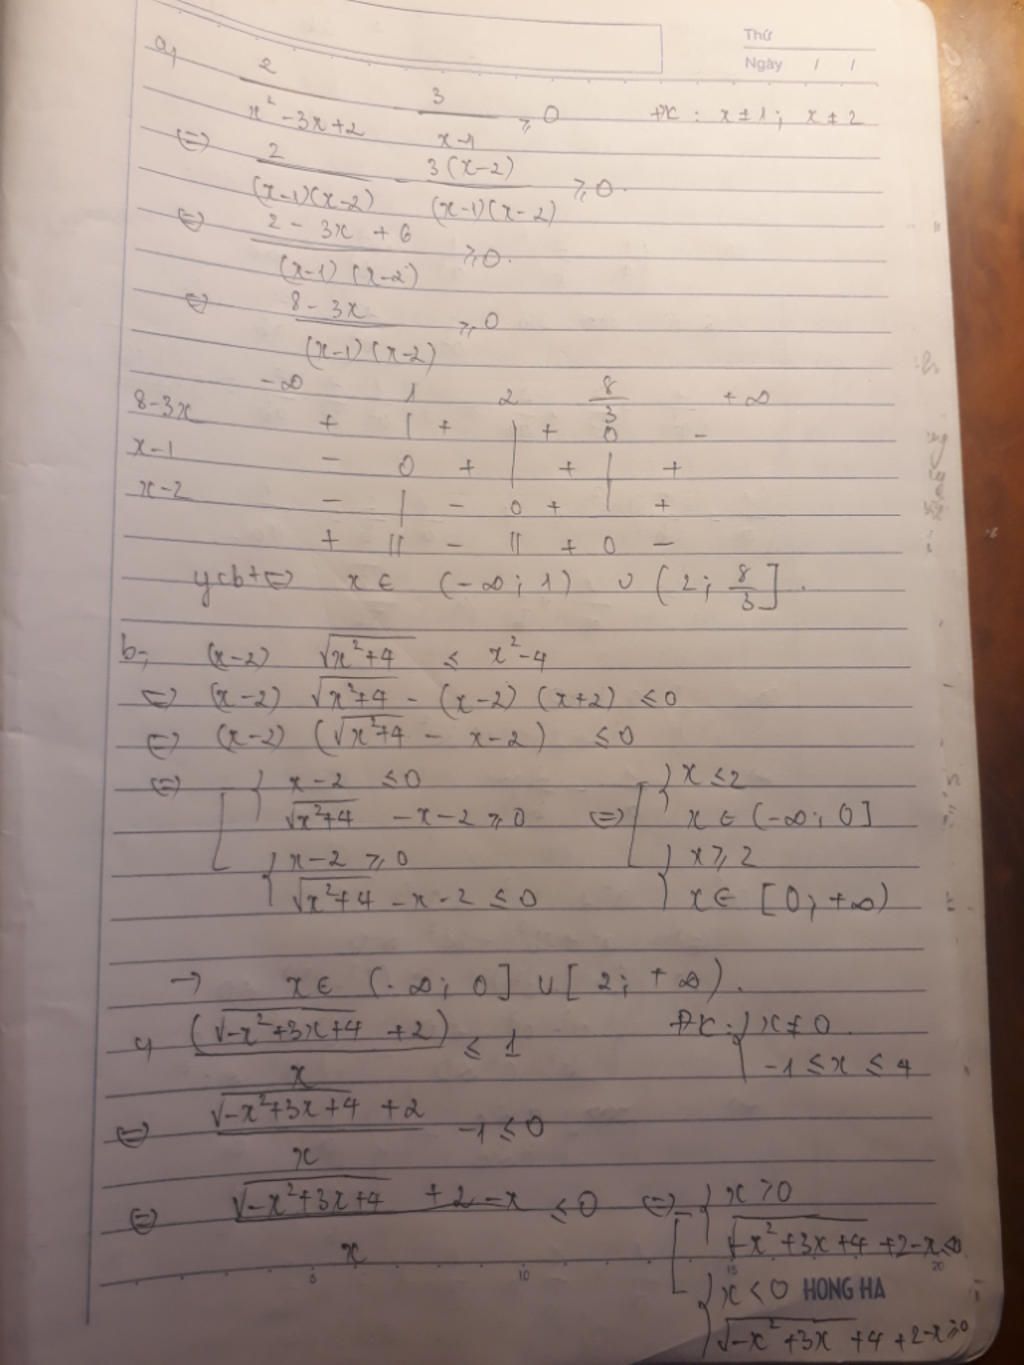 Thứ
Ngày / /
a, 2/(x² - 3x + 2) - 3/(x-1) ≥ 0 ĐK : x ≠ 1 ; x ≠ 2
⇔ 2/((x-1)(x-2)) - 3(x-2)/((x-1)(x-2)) ≥ 0.
⇔ (2 - 3x + 6)/((x-1)(x-2)) ≥ 0.
⇔ (8 - 3x)/((x-1)(x-2)) ≥ 0
-∞ 1 2 8/3 +∞
8-3x + | + | + 0 -
x-1 - 0 + | + | +
x-2 - | - 0 + | +
+ || - || + 0 -
ycbt ⇔ x ∈ (-∞ ; 1) ∪ (2 ; 8/3].
b, (x-2) √(x²+4) ≤ x²-4
⇔ (x-2) √(x²+4) - (x-2) (x+2) ≤ 0
⇔ (x-2) (√(x²+4) - x-2) ≤ 0
⇔ [ { x-2 ≤ 0 ⇔ [ { x ≤ 2
√(x²+4) - x - 2 ≥ 0 x ∈ (-∞ ; 0]
{ x-2 ≥ 0 { x ≥ 2
√(x²+4) - x - 2 ≤ 0 x ∈ [0 ; +∞)
→ x ∈ (-∞ ; 0] ∪ [2 ; +∞).
c, (√(-x²+3x+4) + 2)/x ≤ 1 ĐK : { x ≠ 0
-1 ≤ x ≤ 4
⇔ (√(-x²+3x+4) + 2)/x - 1 ≤ 0
⇔ (√(-x²+3x+4) + 2 - x)/x ≤ 0 ⇔ [ { x > 0
√(-x²+3x+4) + 2 - x ≤ 0
{ x < 0
√(-x²+3x+4) + 2 - x ≥ 0
5 10 15 20
HONG HA